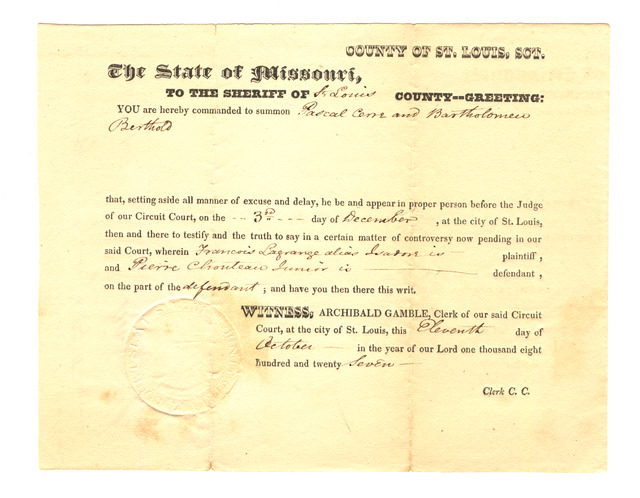 COUNTY OF ST. LOUIS, SCT.
The State of Missouri,
TO THE SHERIFF OF St Louis COUNTY---GREETING:
YOU are hereby commanded to summon Pascal Cerre and Bartholomew
Berthold
that, setting aside all manner of excuse and delay, he be and appear in proper person before the Judge
of our Circuit Court, on the -- 3rd --- day of December , at the city of St. Louis,
then and there to testify and the truth to say in a certain matter of controversy now pending in our
said Court, wherein Francois Lagrange alias Isadore is plaintiff ,
and Pierre Chouteau Junior is defendant ,
on the part of the defendant ; and have you then there this writ.
WITNESS, ARCHIBALD GAMBLE, Clerk of our said Circuit
Court, at the city of St. Louis, this Eleventh day of
October — in the year of our Lord one thousand eight
hundred and twenty Seven —
Clerk C. C.